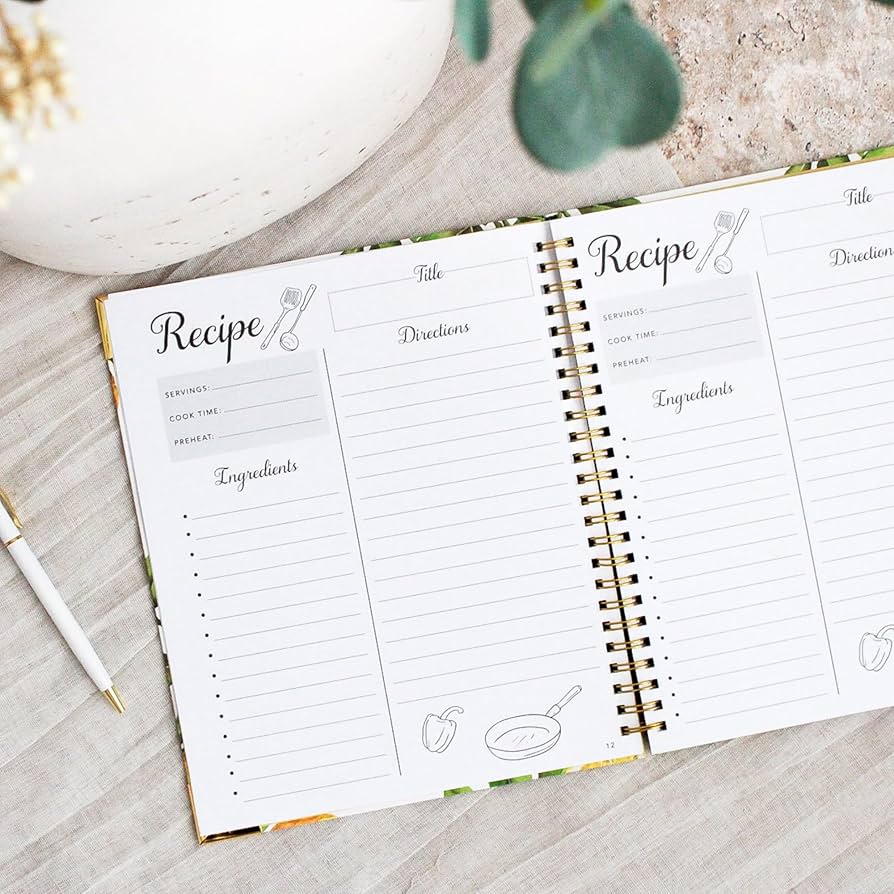 Recipe
Title
SERVINGS:
COOK TIME:
PREHEAT:
Directions
Ingredients
12
Recipe
Title
SERVINGS:
COOK TIME:
PREHEAT:
Directions
Ingredients